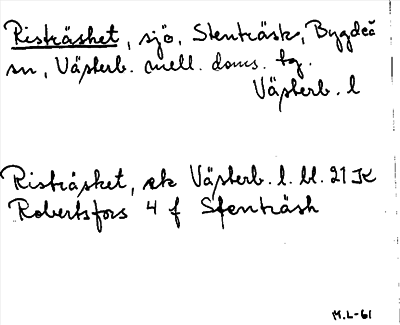 Risträsket, sjö, Stenträsk, Bygdeå
sn, Västerb. mell. doms. tg.
Västerb. l
Risträsket, ek Västerb. l. bl. 21 K
Robertsfors 4 f Stenträsk
M.L-61